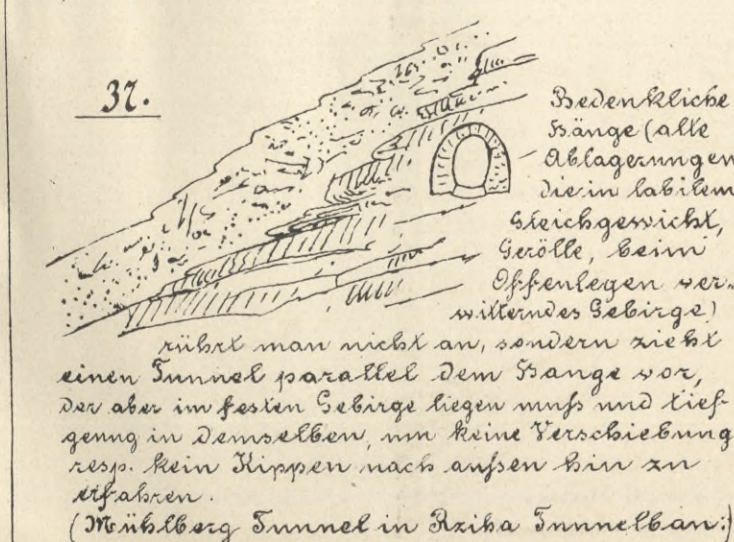 37.
Bedenkliche
Hänge (alte
Ablagerungen
die in labilem
Gleichgewicht,
Gerölle, beim
Offenlegen ver-
witterndes Gebirge)
rührt man nicht an, sondern zieht
einen Tunnel parallel dem Hange vor,
der aber im festen Gebirge liegen muß und tief
genug in demselben, um keine Verschiebung
resp. kein Kippen nach außen hin zu
erfahren.
(Mühlberg Tunnel in Rziha Tunnelbau:)